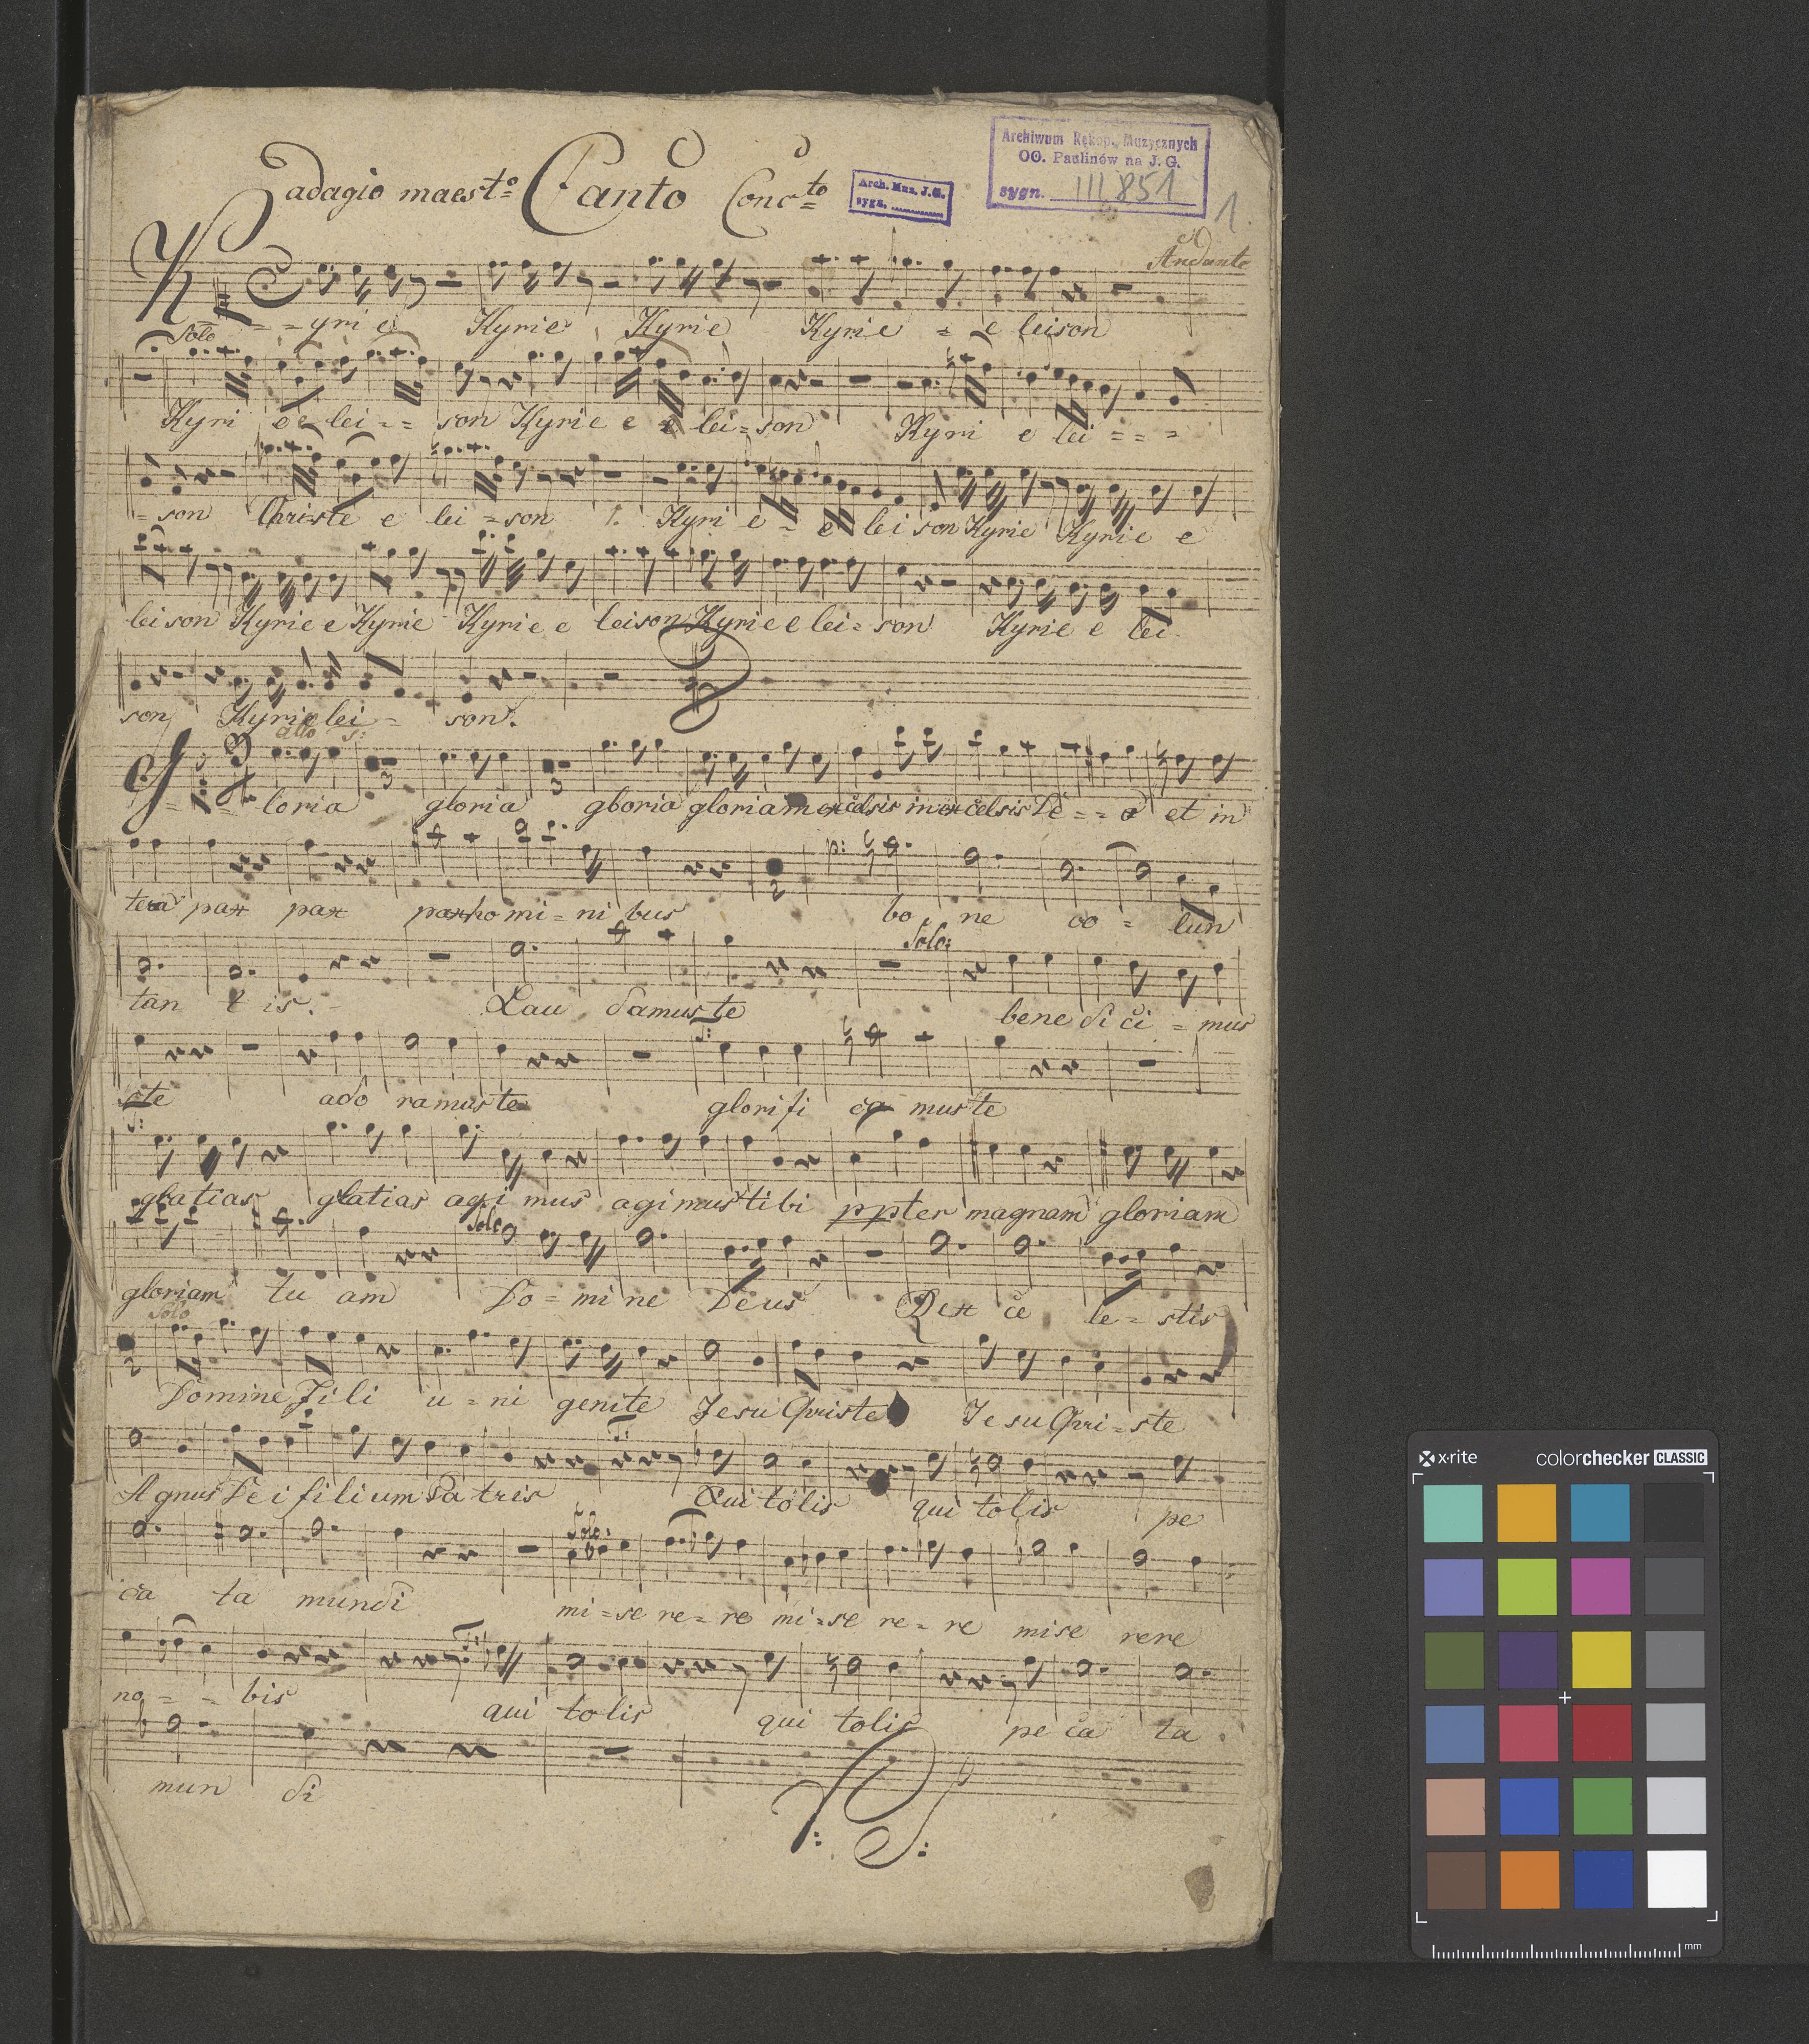 adagio maesto Canto Concto
Arch. Muz. J.G.
sygn. ............
Archiwum Rękop. Muzycznych
OO. Paulinów na J. G.
sygn. III 851
1.
Andante
K = = yrie Kyrie Kyrie Kyrie = e leison
Solo
Kyri e e lei = = son Kyrie e e lei = son Kyri e lei = = =
= son Christe e lei = son Kyri e = e lei son Kyrie Kyrie e
leison Kyrie e Kyrie Kyrie e leison Kyrie e lei = son Kyrie e lei
son Kyrie lei = son.
allo
G = = loria gloria gloria gloria in excelsis in excelsis De = = o et in
3 3
tera pax pax pax homi = ni bus bo ne vo = lun
2 p:
tan t is. Lau damus te bene di ci = mus
Solo:
te ado ramus te glorifi ca mus te
f:
f:
gratias gratias agi mus agimus tibi ppter magnam gloriam
gloriam tu am Do = mi ne Deus Rex ce le = stis
Solo
Solo
2
Domine Fili u = ni genite Jesu Christe Jesu Chri = ste
Agnus Dei filium Pa tris Qui tolis qui tolis pe
f:
ca ta mundi mi = se re = re mi = se re = re mise rere
Solo.
no = = bis qui tolis qui tolis pe ca ta
mun di
x·rite colorchecker CLASSIC
mm